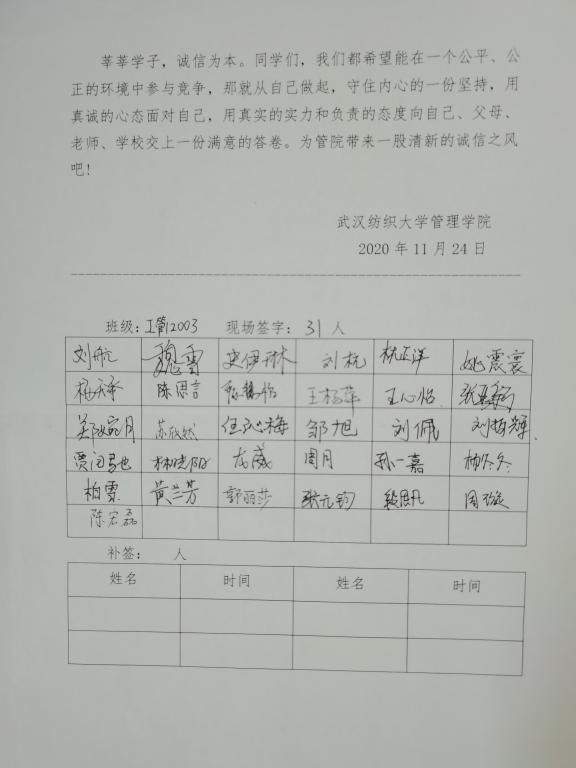 莘莘学子，诚信为本。同学们，我们都希望能在一个公平、公
正的环境中参与竞争，那就从自己做起，守住内心的一份坚持，用
真诚的心态面对自己，用真实的实力和负责的态度向自己、父母、
老师、学校交上一份满意的答卷。为管院带来一股清新的诚信之风
吧！
武汉纺织大学管理学院
2020 年 11 月 24 日
班级：工管12003 现场签字： 31 人
刘航 魏雪 史伊琳 刘杭 林正洋 姚震寰
陈思言 王杨萍 王心怡
郑婉月 苏欣然 任沁梅 邹旭 刘佩 刘梅辉
林晓阳 龙葳 周月 孙一嘉 杨冬冬
柏雪 黄兰芳 郭丽莎 张元钧 段思凡 周璇
陈宏磊
补签： 人
姓名 时间 姓名 时间